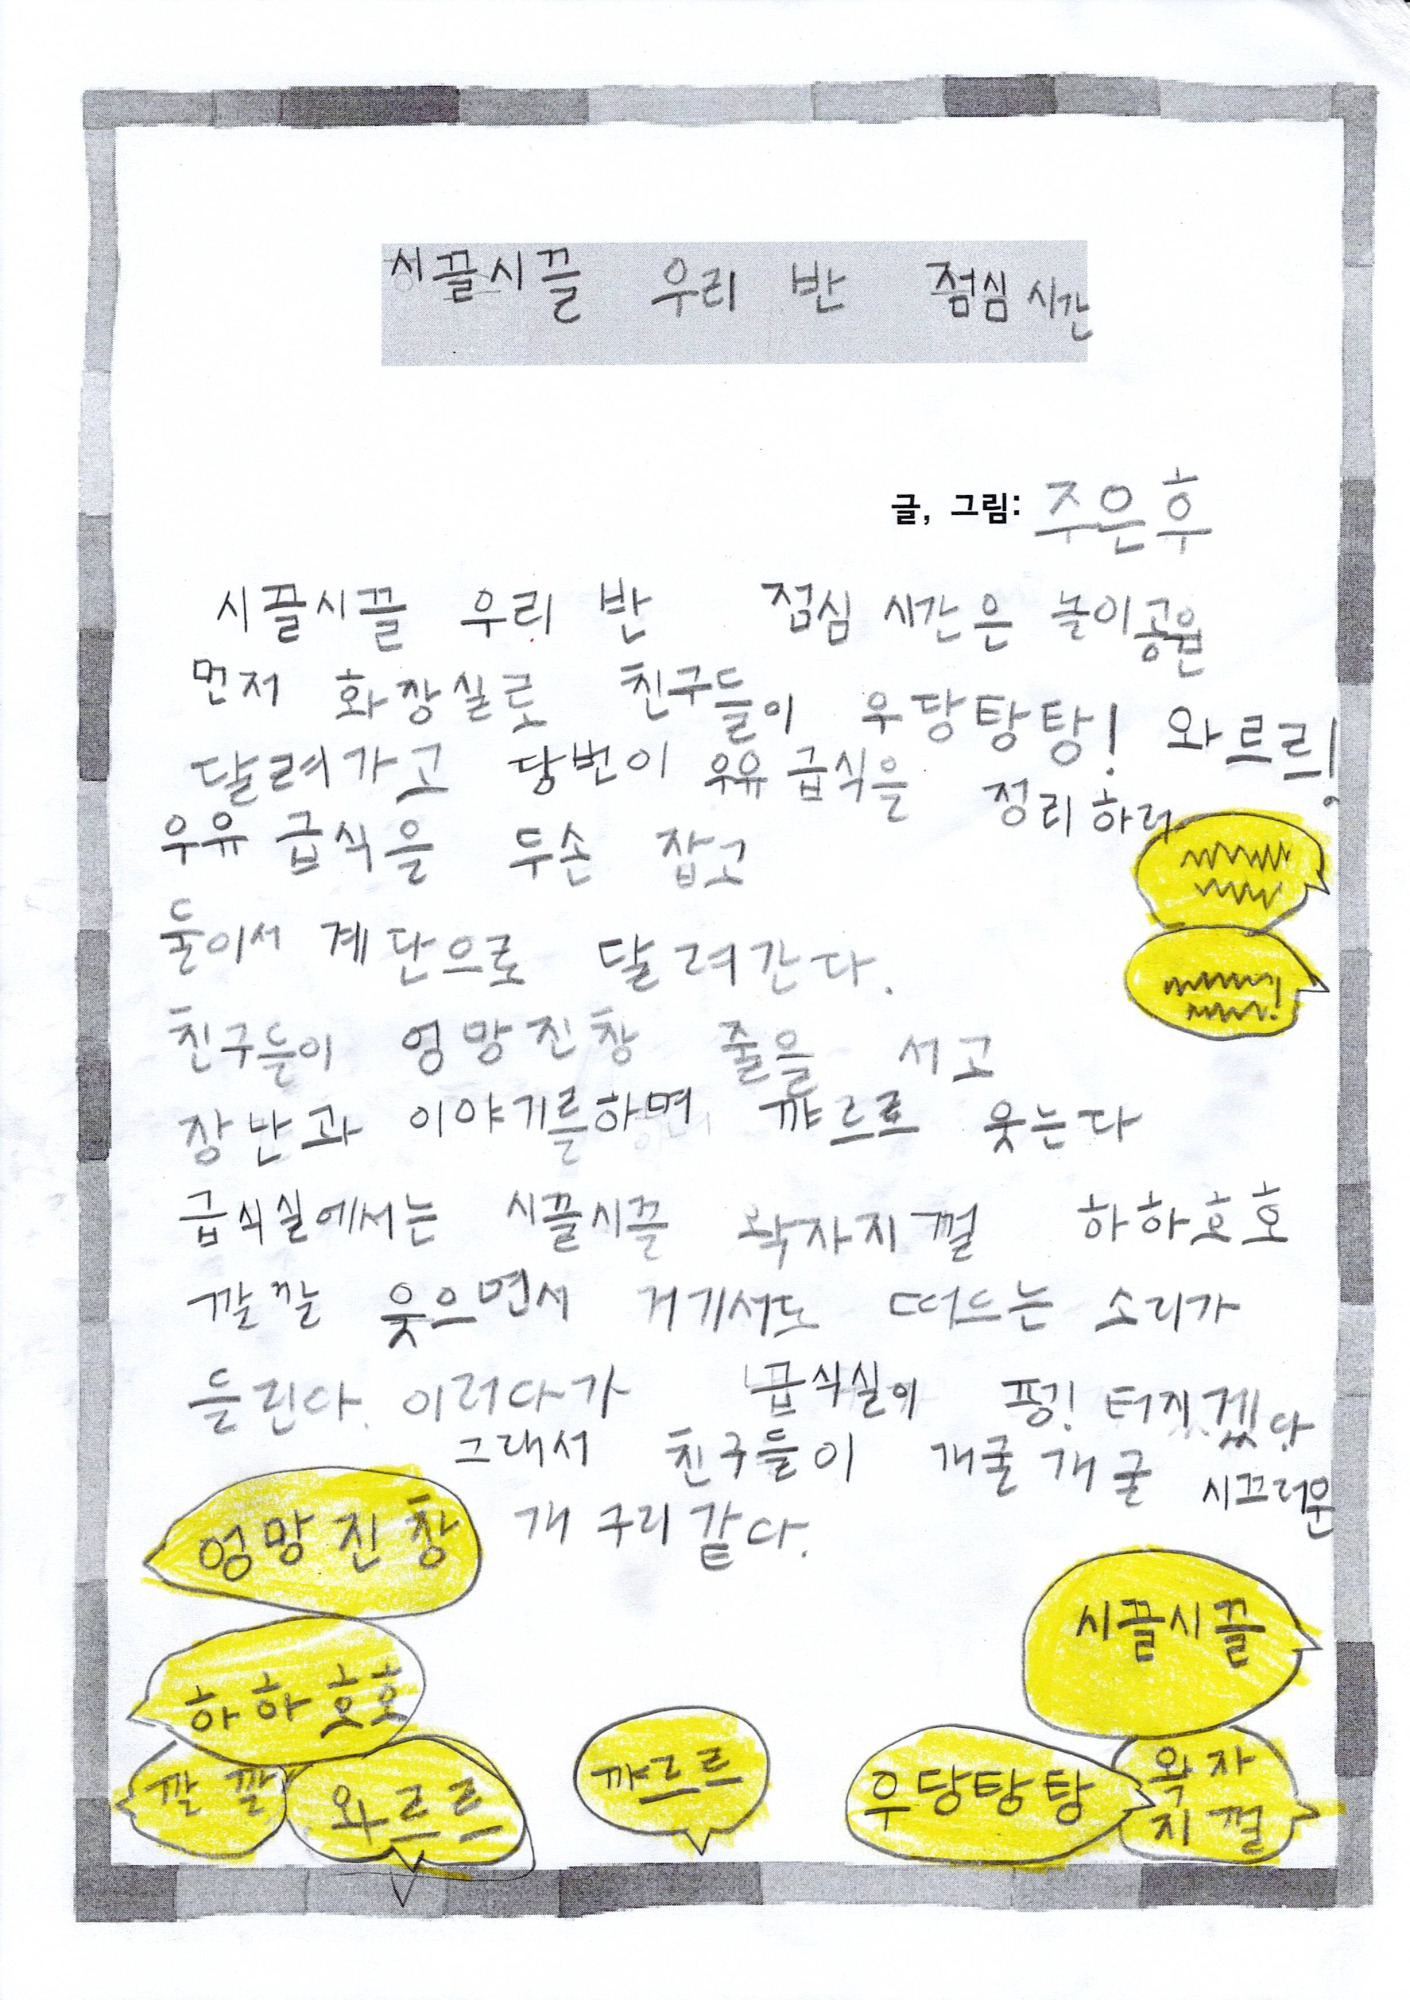 시끌시끌 우리 반 점심 시간
글, 그림: 주은후
시끌시끌 우리 반 점심 시간은 놀이공원
먼저 화장실로 친구들이 우당탕탕! 와르르!
달려가고 당번이 우유 급식을 정리하러
우유 급식을 두손 잡고
둘이서 계단으로 달려간다.
친구들이 엉망진창 줄을 서고
장난과 이야기를하며 꺄르르 웃는다
급식실에서는 시끌시끌 왁자지껄 하하호호
깔깔 웃으면서 거기서도 떠드는 소리가
들린다. 이러다가 급식실이 펑! 터지겠다.
그래서 친구들이 개굴개굴 시끄러운
개구리같다.
엉망진창
시끌시끌
하하호호
깔깔
와르르
꺄르르
우당탕탕
왁자
지껄